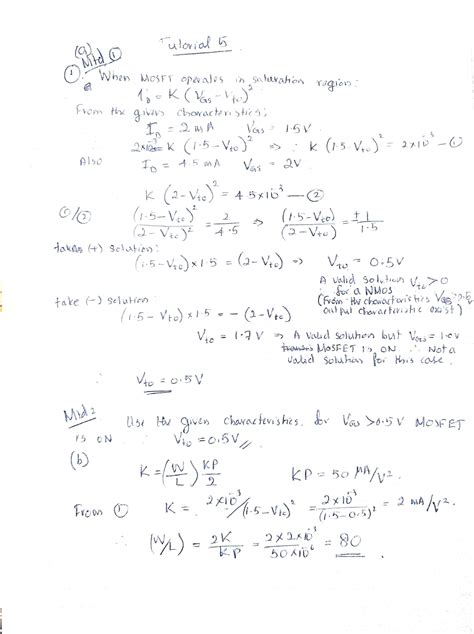 Tutorial 5
(a) Mtd ①
① When MOSFT operates in saturation region:
i_D = K (V_GS - V_to)²
From the given characteristics;
I_D = 2 mA V_GS = 1.5V
2×10⁻³ = K (1.5 - V_to)² ⇒ ∴ K (1.5 - V_to)² = 2×10⁻³ — ①
Also I_D = 4.5 mA V_GS = 2V
K (2 - V_to)² = 4.5×10⁻³ — ②
①/② (1.5 - V_to)² / (2 - V_to)² = 2 / 4.5 ⇒ (1.5 - V_to) / (2 - V_to) = ±1 / 1.5
taken (+) solution:
(1.5 - V_to) × 1.5 = (2 - V_to) ⇒ V_to = 0.5V
A valid solution V_to > 0
for a NMOS
(From the characteristics V_GS = 0.5
output characteristic exist)
take (-) solution:
(1.5 - V_to) × 1.5 = - (2 - V_to)
V_to = 1.7 V ⇒ A valid solution but V_GS = 1.0V
MOSFET is ON ∴ Not a
valid solution for this case.
∴ V_to = 0.5V
Mtd 2 Use the given characteristics. for V_GS > 0.5V MOSFET
is ON ∴ V_to = 0.5V
(b)
K = (W/L) KP/2 KP = 50 μA/V².
From ① K = 2×10⁻³ / (1.5 - V_to)² = 2×10⁻³ / (1.5 - 0.5)² = 2 mA/V².
∴ (W/L) = 2K / KP = 2×2×10⁻³ / 50×10⁻⁶ = 80